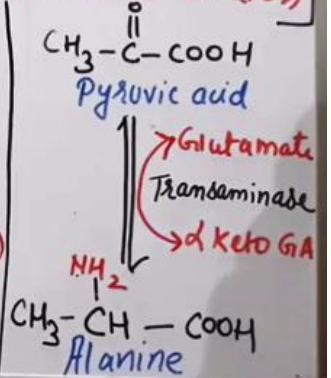 O
||
CH3-C-COOH
Pyruvic acid
Glutamate
Transaminase
α Keto GA
NH2
CH3-CH-COOH
Alanine